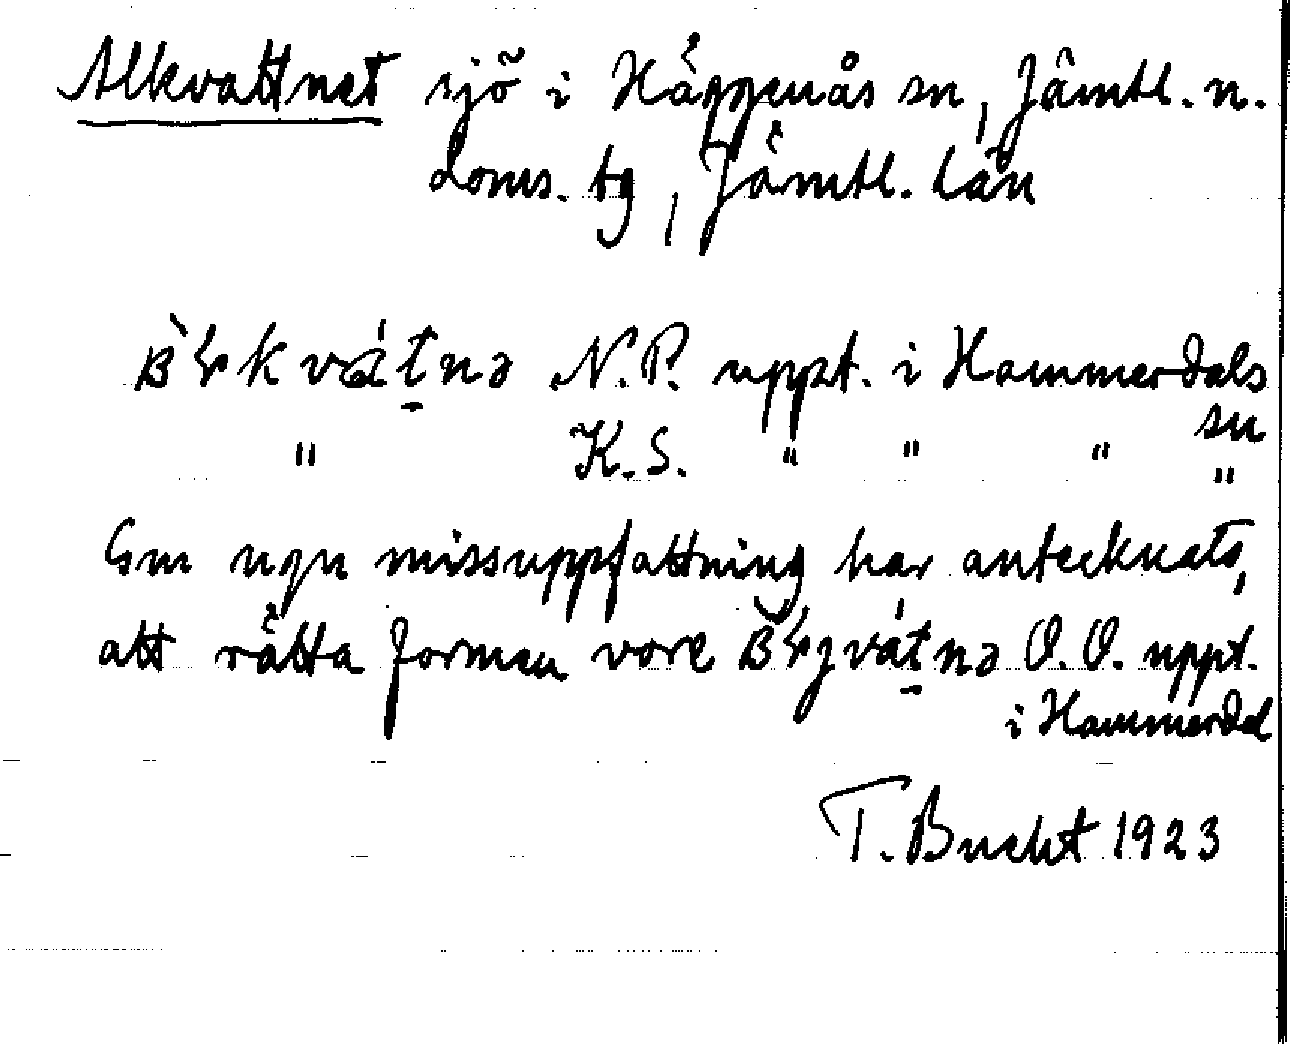 Alkvattnet sjö i Häggenås sn, Jämtl. n.
doms. tg, Jämtl. län
N.P. uppt. i Hammerdals
sn
" K.S. " " "
"
Gm ngn missuppfattning har antecknats,
att rätta formen vore O.O. uppt.
i Hammerdal
T. Bucht 1923